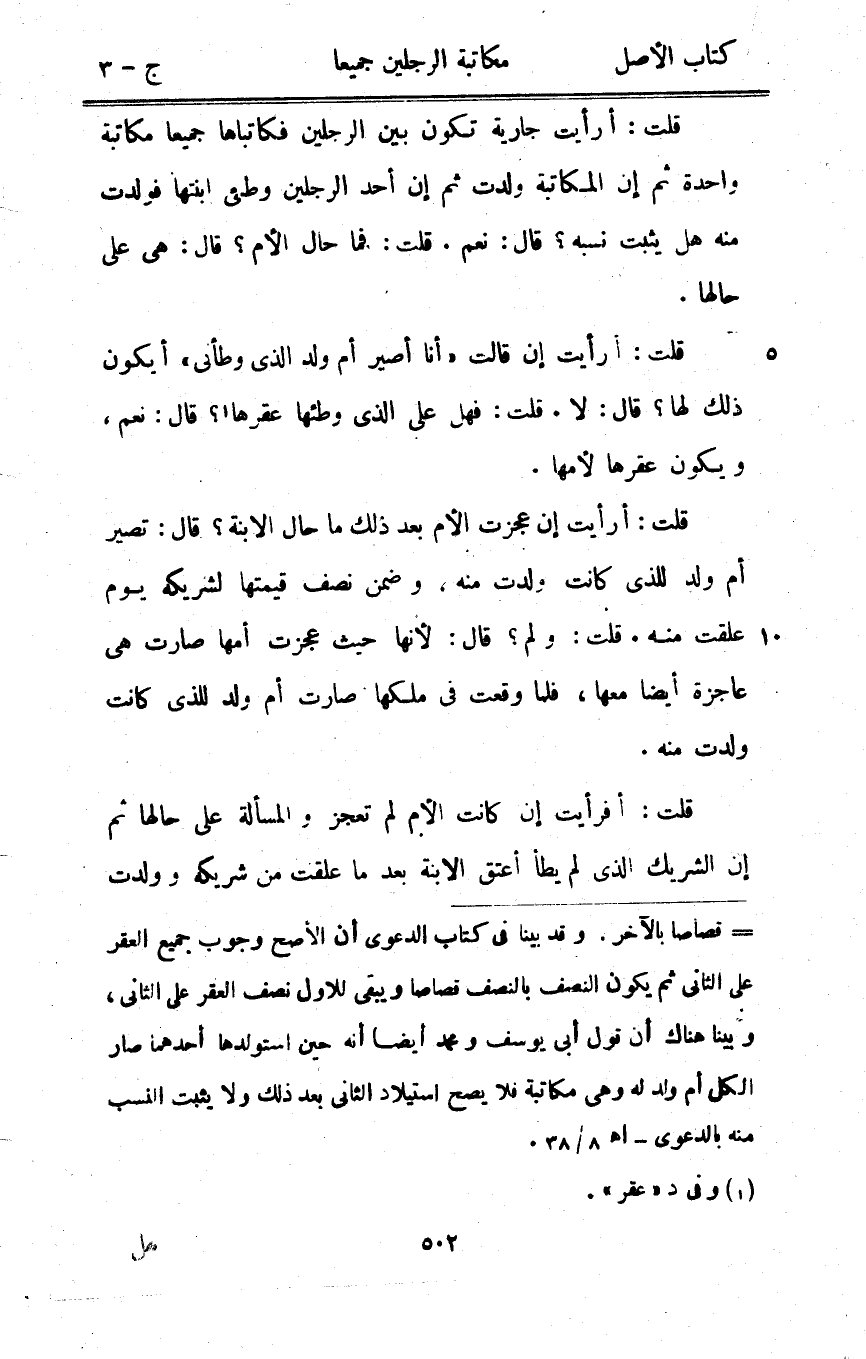 كتاب الأصل مكاتبة الرجلين جميعا ج - ٣
قلت : أرأيت جارية تكون بين الرجلين فكاتباها جميعا مكاتبة
واحدة ثم إن المكاتبة ولدت ثم إن أحد الرجلين وطئ ابنتها فولدت
منه هل يثبت نسبه ؟ قال : نعم . قلت : فما حال الأم ؟ قال : هى على
حالها .
٥ قلت : أرأيت إن قالت « أنا أصير أم ولد الذى وطأنى » أيكون
ذلك لها ؟ قال : لا . قلت : فهل على الذى وطئها عقرها١ ؟ قال : نعم ،
و يكون عقرها لأمها .
قلت : أرأيت إن عجزت الأم بعد ذلك ما حال الابنة ؟ قال : تصير
أم ولد للذى كانت ولدت منه ، و ضمن نصف قيمتها لشريكه يوم
١٠ علقت منه . قلت : و لم ؟ قال : لأنها حيث عجزت أمها صارت هى
عاجزة أيضا معها ، فلما وقعت فى ملكها صارت أم ولد للذى كانت
ولدت منه .
قلت : أفرأيت إن كانت الأم لم تعجز و المسألة على حالها ثم
إن الشريك الذى لم يطأ أعتق الابنة بعد ما علقت من شريكه و ولدت
= قصاصا بالآخر . و قد بينا فى كتاب الدعوى أن الأصح وجوب جميع العقر
على الثانى ثم يكون النصف بالنصف قصاصا و يبقى للاول نصف العقر على الثانى ،
و بينا هناك أن قول أبى يوسف و محمد أيضا أنه حين استولدها أحدهما صار
الكل أم ولد له وهى مكاتبة فلا يصح استيلاد الثانى بعد ذلك ولا يثبت النسب
منه بالدعوى - اه ٨ / ٣٨ .
(١) و فى د « عقر » .
٥٠٢